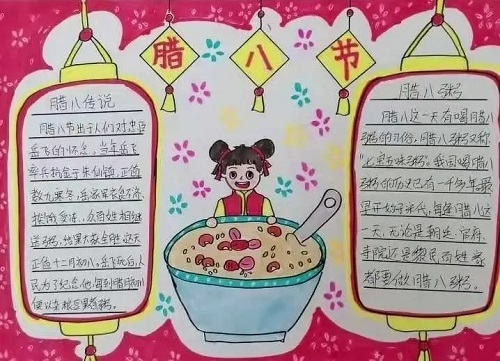 腊八节
腊八传说
腊八节出于人们对忠臣
岳飞的怀念,当年岳飞
率兵抗金于朱仙镇,正值
数九寒冬,岳家军衣食不济
挨饿受冻,众百姓相继
送粥,结果大获全胜,这天
正值十二月初八,岳飞死后,人
民为了纪念他,每到腊月初八
便以杂粮豆果煮粥。
腊八粥
腊八这一天有喝腊八
粥的习俗,腊八粥又称
"七宝五味粥"。我国喝腊八
粥的历史已有一千多年,最
早开始于宋代,每逢腊八这
一天,无论是朝廷、官府、
寺院还是黎民百姓家
都要做腊八粥。